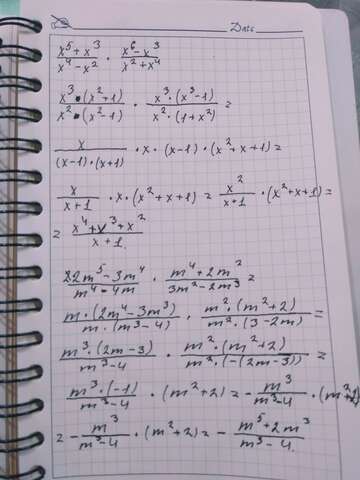 Date
x⁵ + x³ / x⁴ - x² · x⁶ - x³ / x² + x⁴
x³ · (x² + 1) / x² · (x² - 1) · x³ · (x³ - 1) / x² · (1 + x²) =
x / (x-1) · (x+1) · x · (x-1) · (x² + x + 1) =
x / x+1 · x · (x² + x + 1) = x² / x+1 · (x² + x + 1) =
= x⁴ + x³ + x² / x + 1.
22m⁵ - 3m⁴ / m⁴ - 4m · m⁴ + 2m² / 3m² - 2m³ =
m · (2m⁴ - 3m³) / m · (m³ - 4) · m² · (m² + 2) / m² · (3 - 2m) =
m³ · (2m - 3) / m³ - 4 · m² · (m² + 2) / m² · (-(2m - 3)) =
m³ · (-1) / m³ - 4 · (m² + 2) = - m³ / m³ - 4 · (m² + 2)
= - m³ / m³ - 4 · (m² + 2) = - m⁵ + 2m³ / m³ - 4.